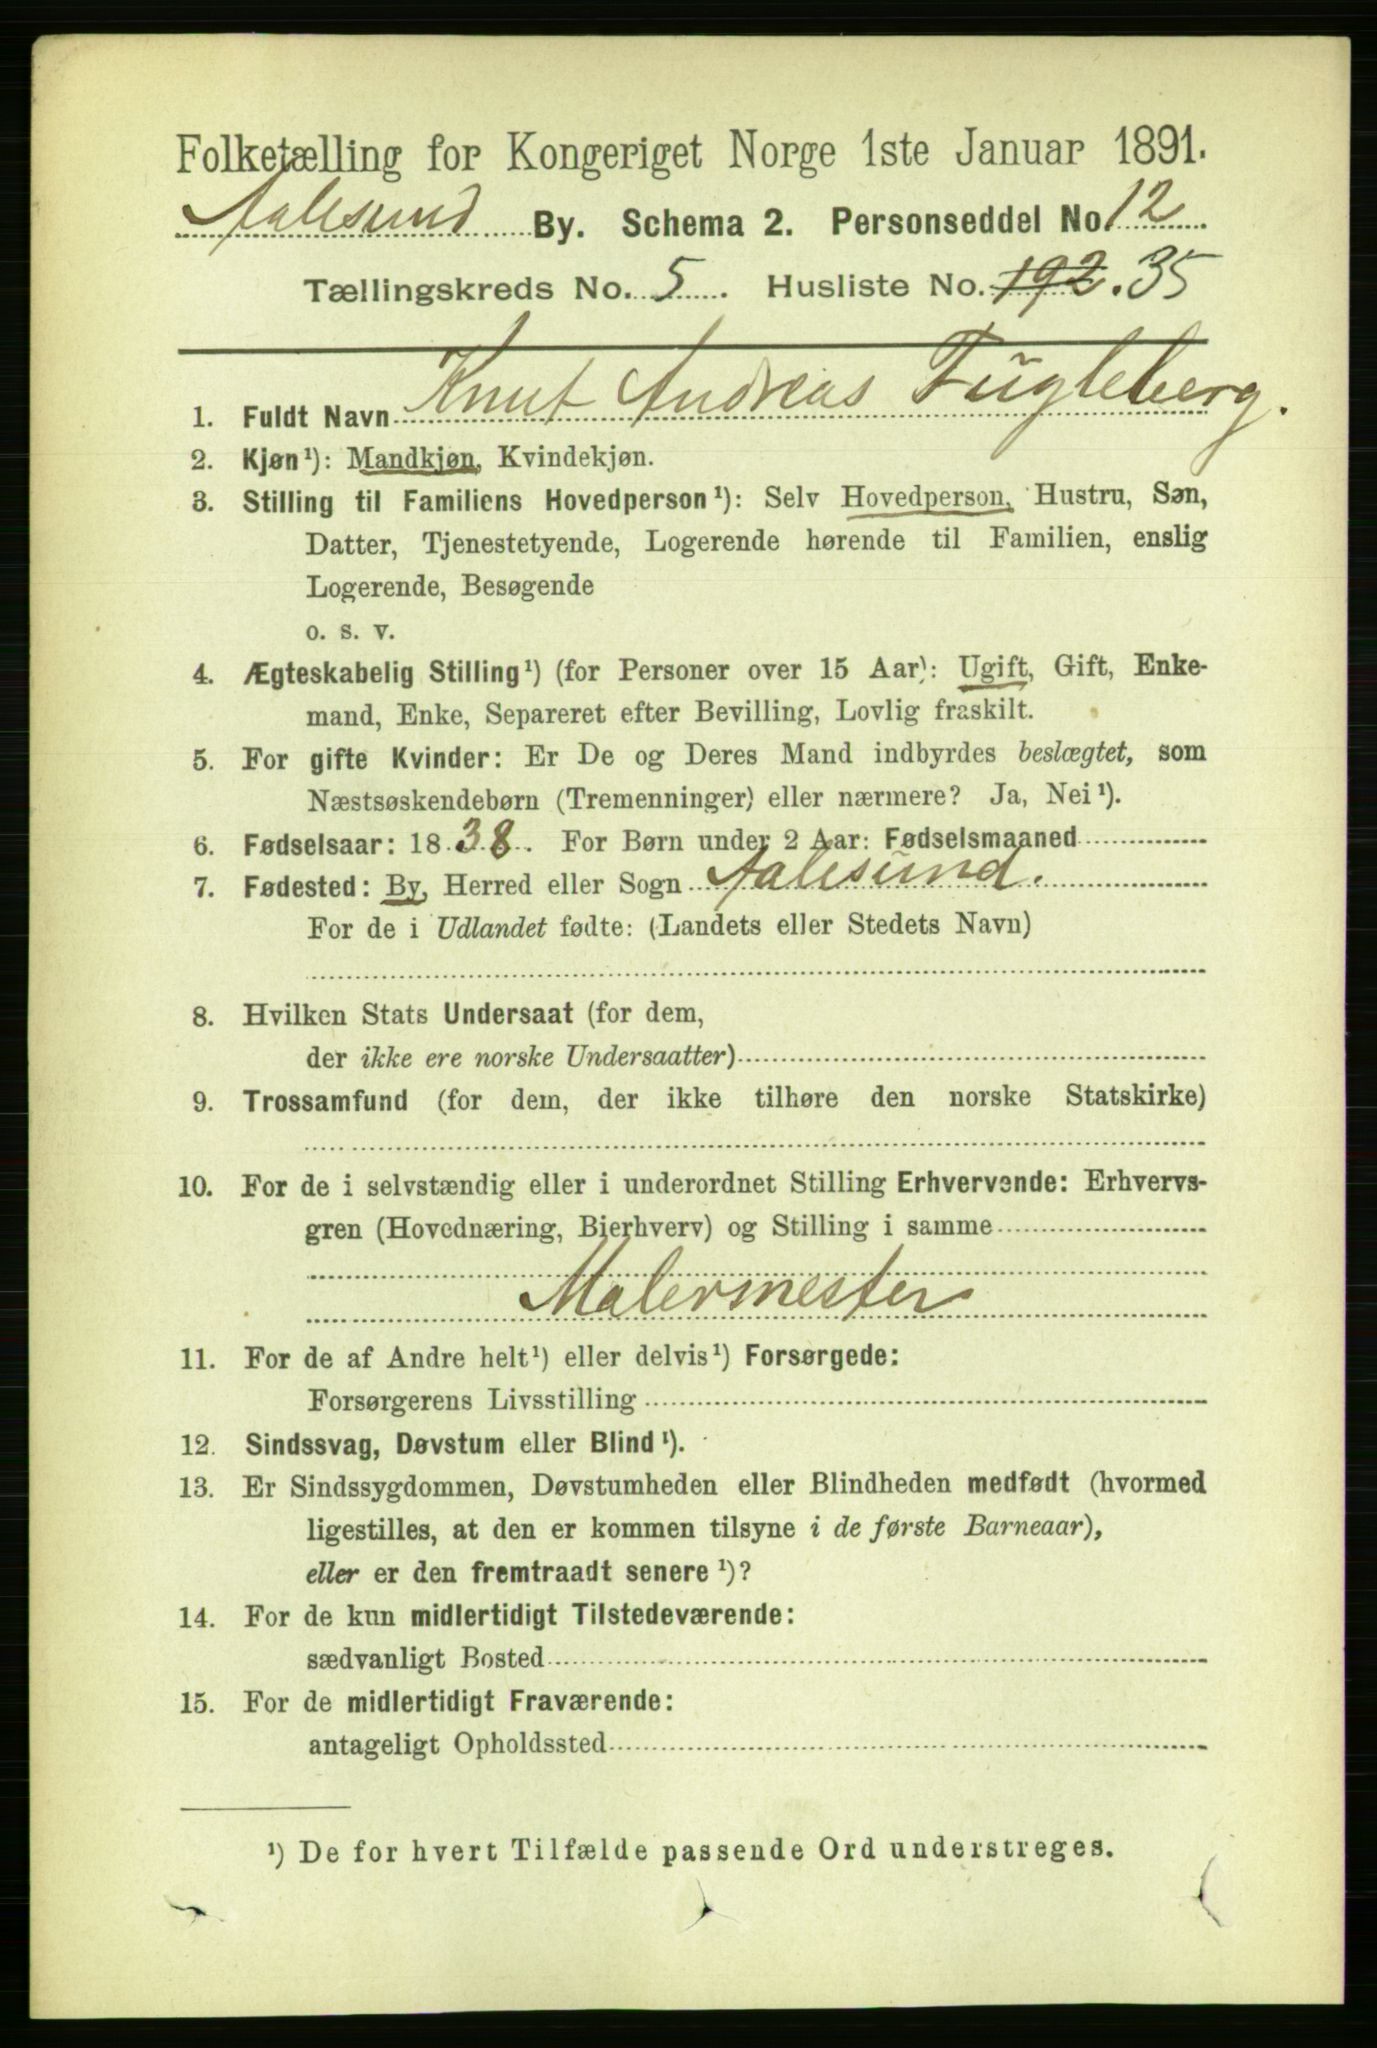 Folketælling for Kongeriget Norge 1ste Januar 1891.
Aalesund By. Schema 2. Personseddel No 12
Tællingskreds No. 5. Husliste No. 192. 35
1. Fuldt Navn Knut Andreas Fugleberg.
2. Kjøn¹): Mandkjøn, Kvindekjøn.
3. Stilling til Familiens Hovedperson¹): Selv Hovedperson, Hustru, Søn,
Datter, Tjenestetyende, Logerende hørende til Familien, enslig
Logerende, Besøgende
o. s. v.
4. Ægteskabelig Stilling¹) (for Personer over 15 Aar): Ugift, Gift, Enke-
mand, Enke, Separeret efter Bevilling, Lovlig fraskilt.
5. For gifte Kvinder: Er De og Deres Mand indbyrdes beslægtet, som
Næstsøskendebørn (Tremenninger) eller nærmere? Ja, Nei¹).
6. Fødselsaar: 1838. For Børn under 2 Aar: Fødselsmaaned
7. Fødested: By, Herred eller Sogn Aalesund.
For de i Udlandet fødte: (Landets eller Stedets Navn)
8. Hvilken Stats Undersaat (for dem,
der ikke ere norske Undersaatter)
9. Trossamfund (for dem, der ikke tilhøre den norske Statskirke)
10. For de i selvstændig eller i underordnet Stilling Erhvervende: Erhvervs-
gren (Hovednæring, Bierhverv) og Stilling i samme
Malermester
11. For de af Andre helt¹) eller delvis¹) Forsørgede:
Forsørgerens Livsstilling
12. Sindssvag, Døvstum eller Blind¹).
13. Er Sindssygdommen, Døvstumheden eller Blindheden medfødt (hvormed
ligestilles, at den er kommen tilsyne i de første Barneaar),
eller er den fremtraadt senere¹)?
14. For de kun midlertidigt Tilstedeværende:
sædvanligt Bosted
15. For de midlertidigt Fraværende:
antageligt Opholdssted
¹) De for hvert Tilfælde passende Ord understreges.